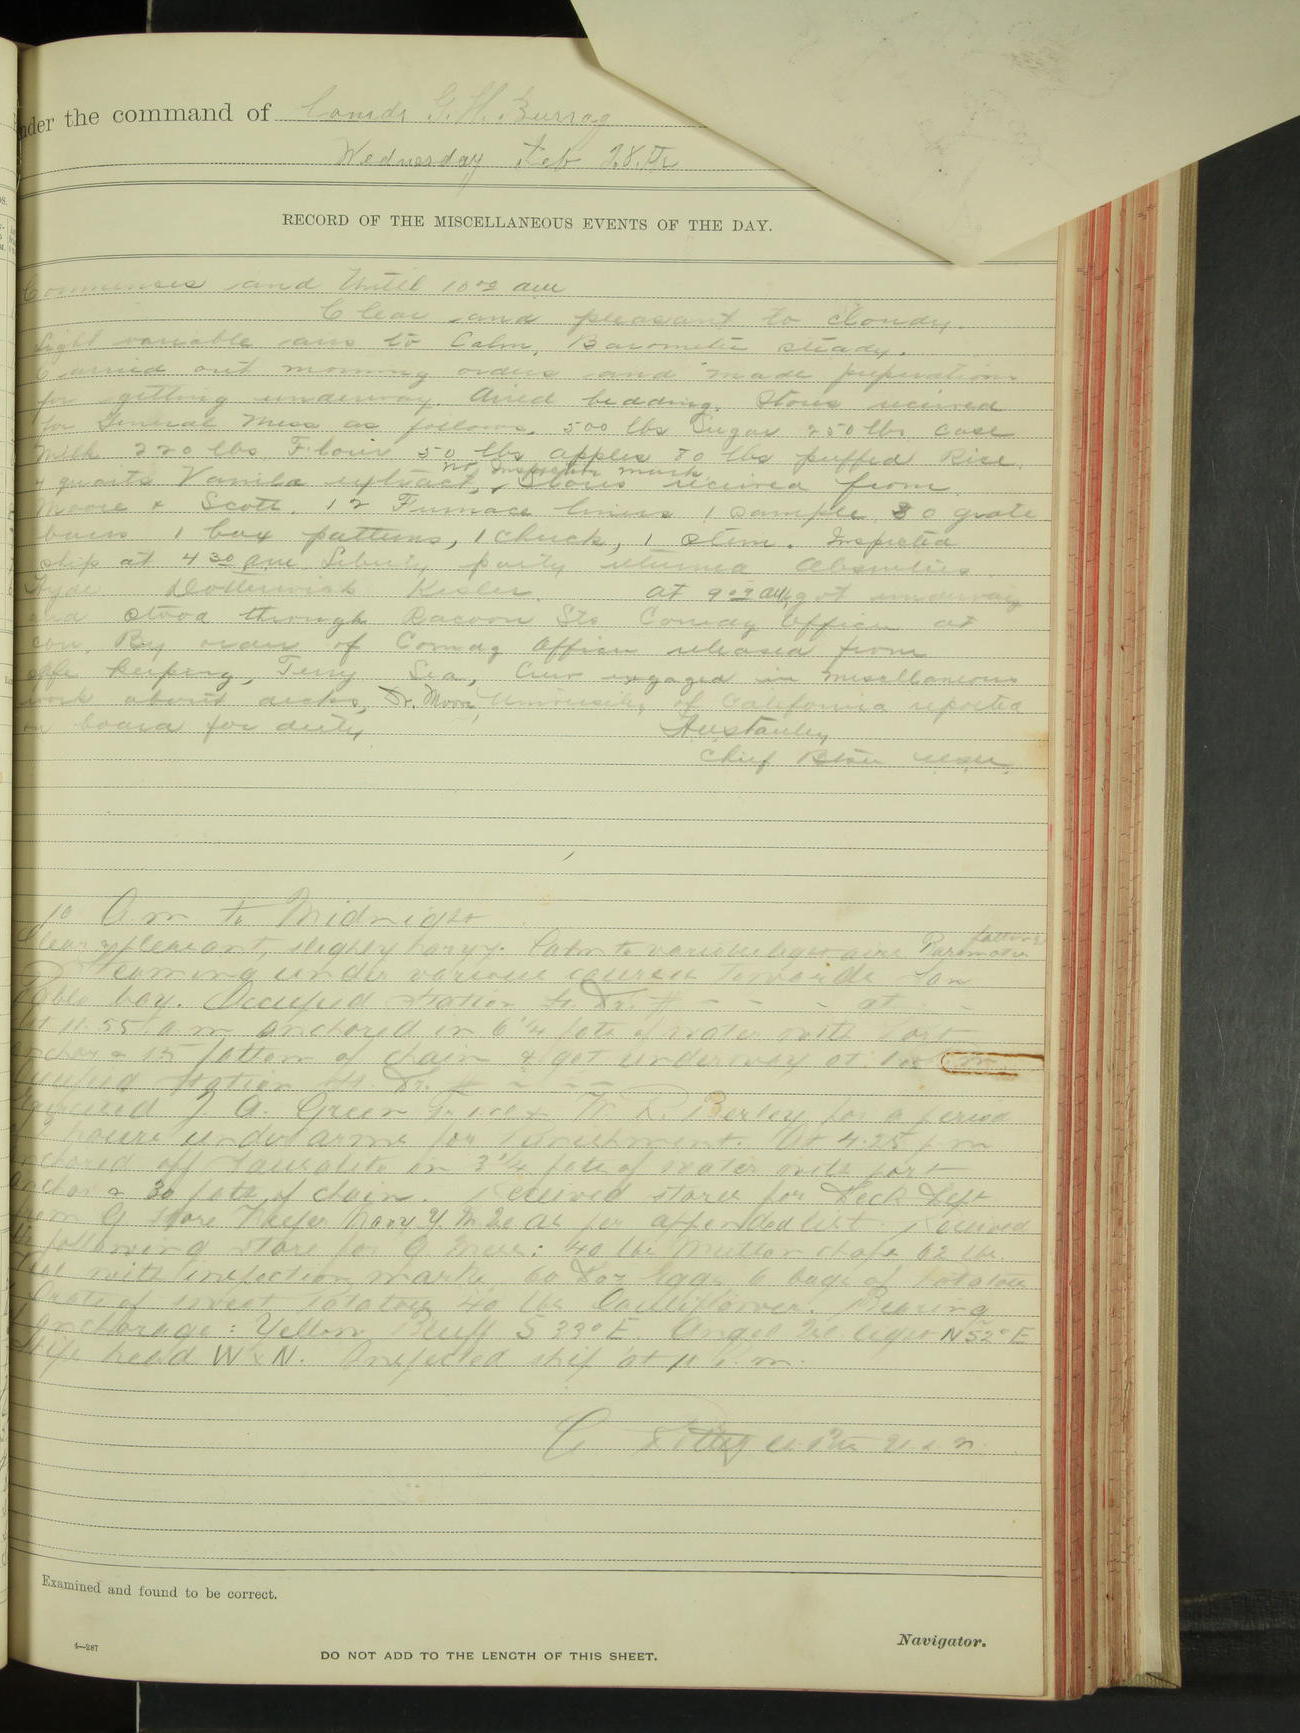 under the command of Comdr G. H. Burrag
Wednesday Feb 28.Th
RECORD OF THE MISCELLANEOUS EVENTS OF THE DAY.
Commences and Until 10 00 am
Clear and pleasant to Cloudy.
Light variable airs to Calm, Barometer steady.
Carried out morning orders and made preperations
for getting underway. Aired bedding. Stores received
for General Mess as follows. 500 lbs Sugar 250 lbs case
Milk 220 lbs Flour 50 lbs apples 80 lbs puffed Rice.
no Inspection mark
4 quarts Vanila extract, Stores received from
Moore & Scott. 12 Furnace liners 1 sample, 30 grate
bars 1 box patterns, 1 chuck, 1 stem. Inspected
ship at 4 30 am Liberty party returned Absentees
Hyde Kesler. At 9 02 am got underway
and stood through Racoon Sts Comdg Officer at
con. By order of Comdg Officer released from
safe keeping, Terry Sea, Crew engaged in miscellaneous
work about decks, Dr. Mora University of California reported
on board for duty
Chief Btsn USN.
10 A m to Midnight
Clear & pleasant, slightly hazy. Calm to variable light airs Barometer falling
Steaming under various courses towards San
Pablo bay. Occupied Station H. Dr. # - - - at - -
At 11.55 a m anchored in 6 1/4 fats of water with Port
anchor & 15 fattom of chain & got underway at 1 m
Occupied Station H. Dr. # - - - -
A. Green W. R. for a period
of hours under arms for Punishment. At 4.25 p m
anchored off Sausalito in 3 1/4 fats of water with port
anchor & 30 fats of chain. Received stores for Deck Dept
from G Store Keeper Navy Y. M. Is as per appended list. Received
the following store for G Mess: 40 lbs Mutton chops 62 lbs
with inspection marks, 60 Doz Eggs 6 bags of Potatoes
Crate of sweet Potatoes 40 lbs Cauliflower. Bearing
of anchorage: Yellow Bluff S 33° E. Angel Isl light N 52° E
Ships head W x N. Inspected ship at P. m.
U S N
Examined and found to be correct.
4—287
Navigator.
DO NOT ADD TO THE LENGTH OF THIS SHEET.